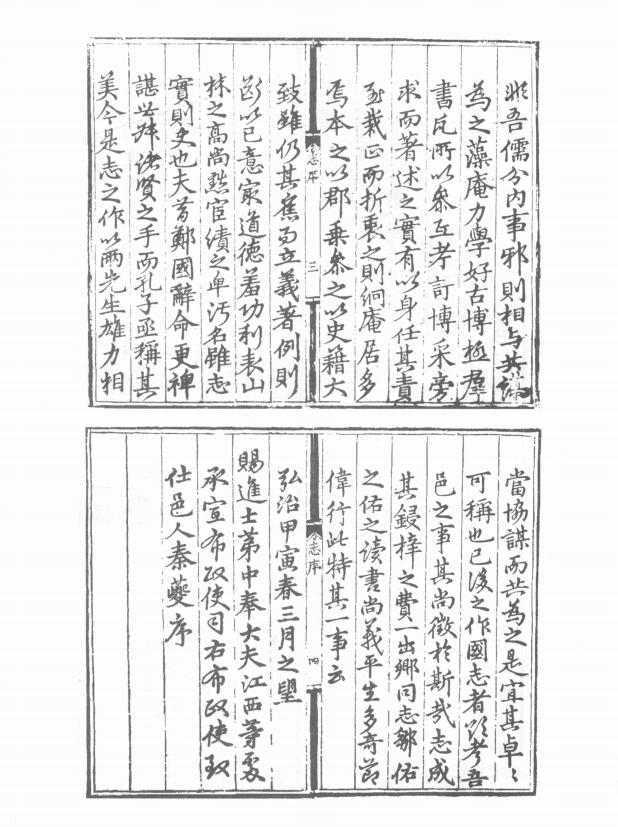 非吾儒分内事邪則相与共編
為之藻庵力學好古博極羣
書凡所以叅互考訂博采旁
求而著述之實有以身任其責
至裁正而折衷之則絅庵居多
焉本之以郡乗叅之以史籍大
金志序
三
致雖仍其舊而立義著例則
斷以已意寂道德羞功利表山
林之高尚黜宦績之卑汚名雖志
實則史也夫昔鄭國辭命更裨
諶世叔諸賢之手而孔子亟稱其
美今是志之作以兩先生雄力相
當協謀而共為之是宜其卓〻
可稱也已後之作國志者欲考吾
邑之事其尚徵於斯哉志成
其鋟梓之費一出鄉同志鄒佑
之佑之读書尚義平生多奇節
偉行此特其一事云
金志序
四
弘治甲寅春三月之望
賜進士第中奉大夫江西等處
承宣布政使司右布政使致
仕邑人秦夔序